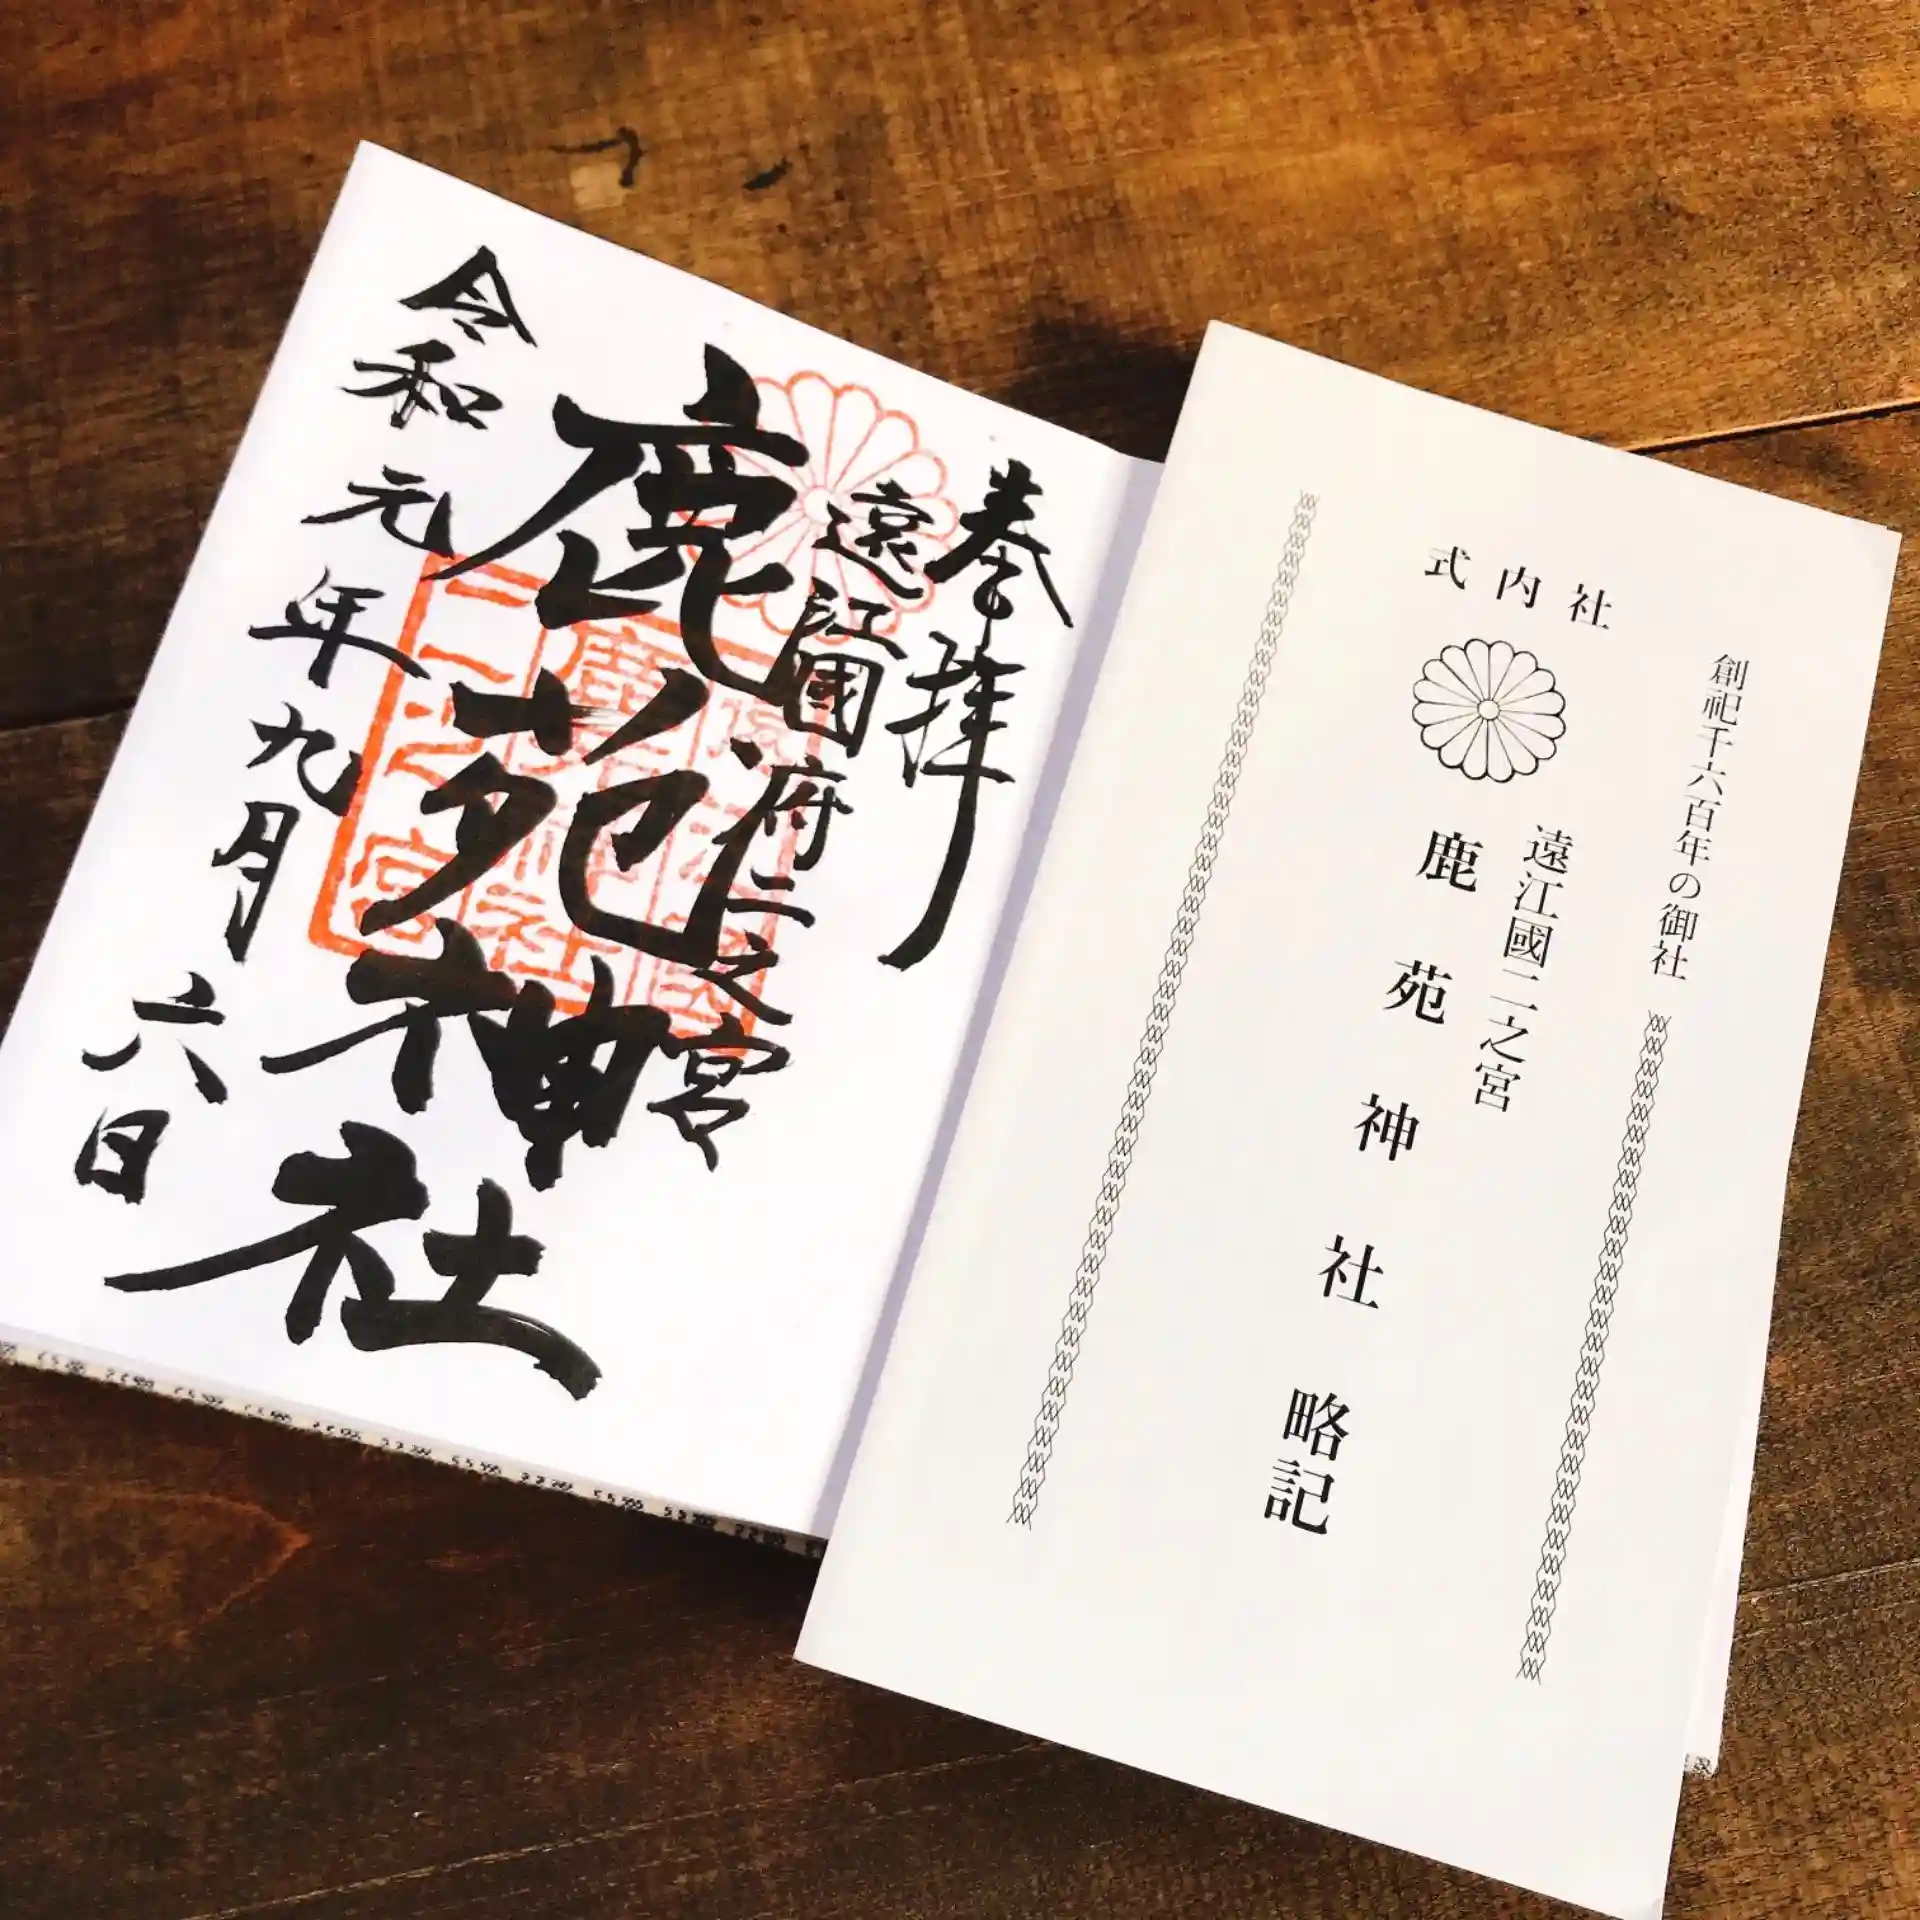 奉拝
遠江國府二之宮
鹿苑神社
令和元年九月六日
二之宮
鹿苑神社
創祀千六百年の御社
式内社
遠江國二之宮
鹿苑神社略記